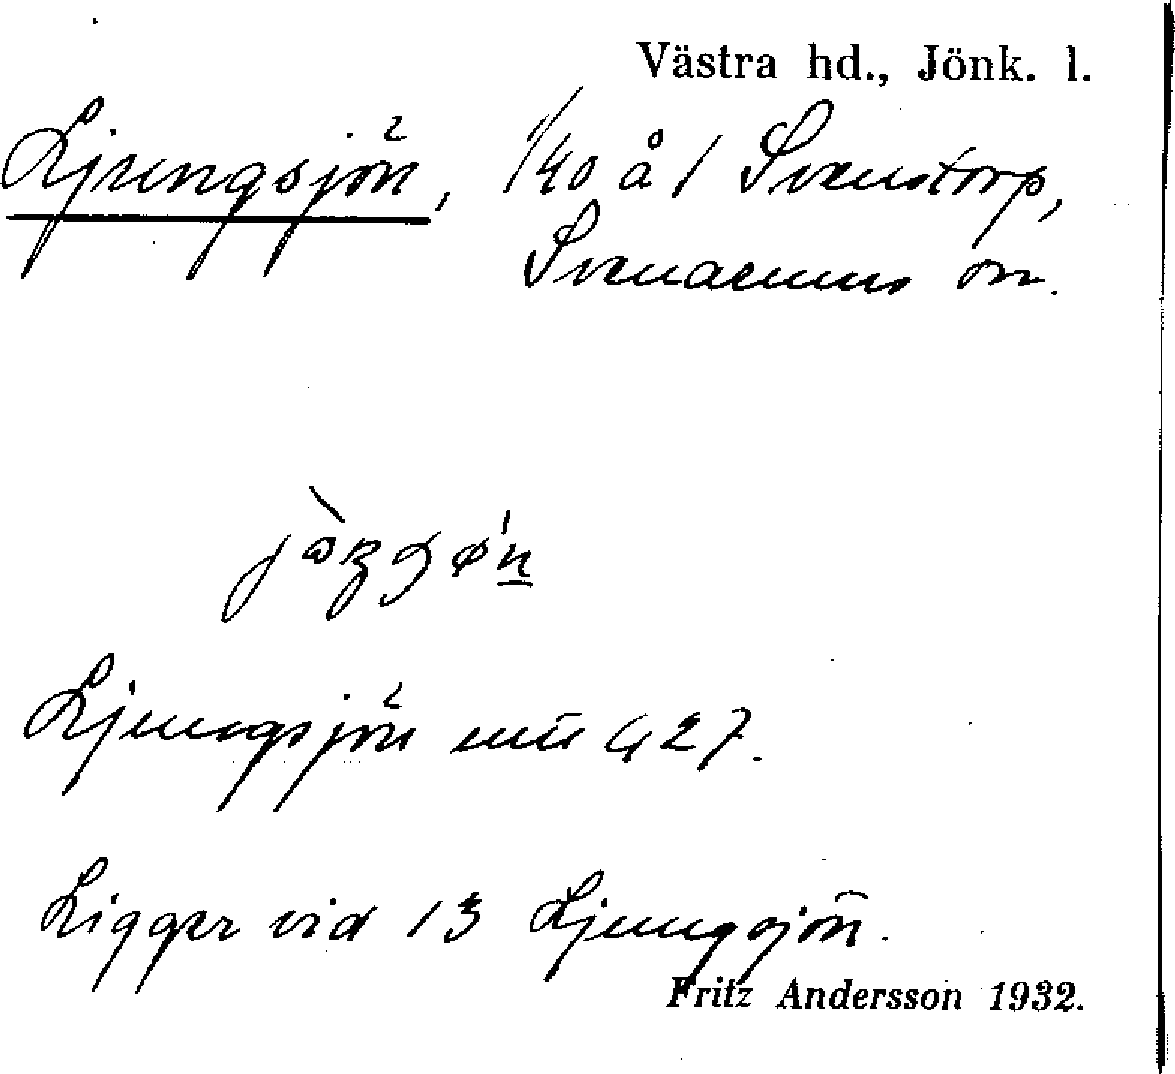 Västra hd., Jönk. l.
Ljungsjön, 1/40 å 1 Svenstorp,
Svenarums sn.
Ljungsjön
Ligger vid 13 Ljungsjön.
Fritz Andersson 1932.